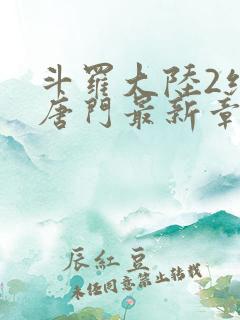 斗羅大陸2
唐門最新章
辰紅豆
未任同意禁止转载